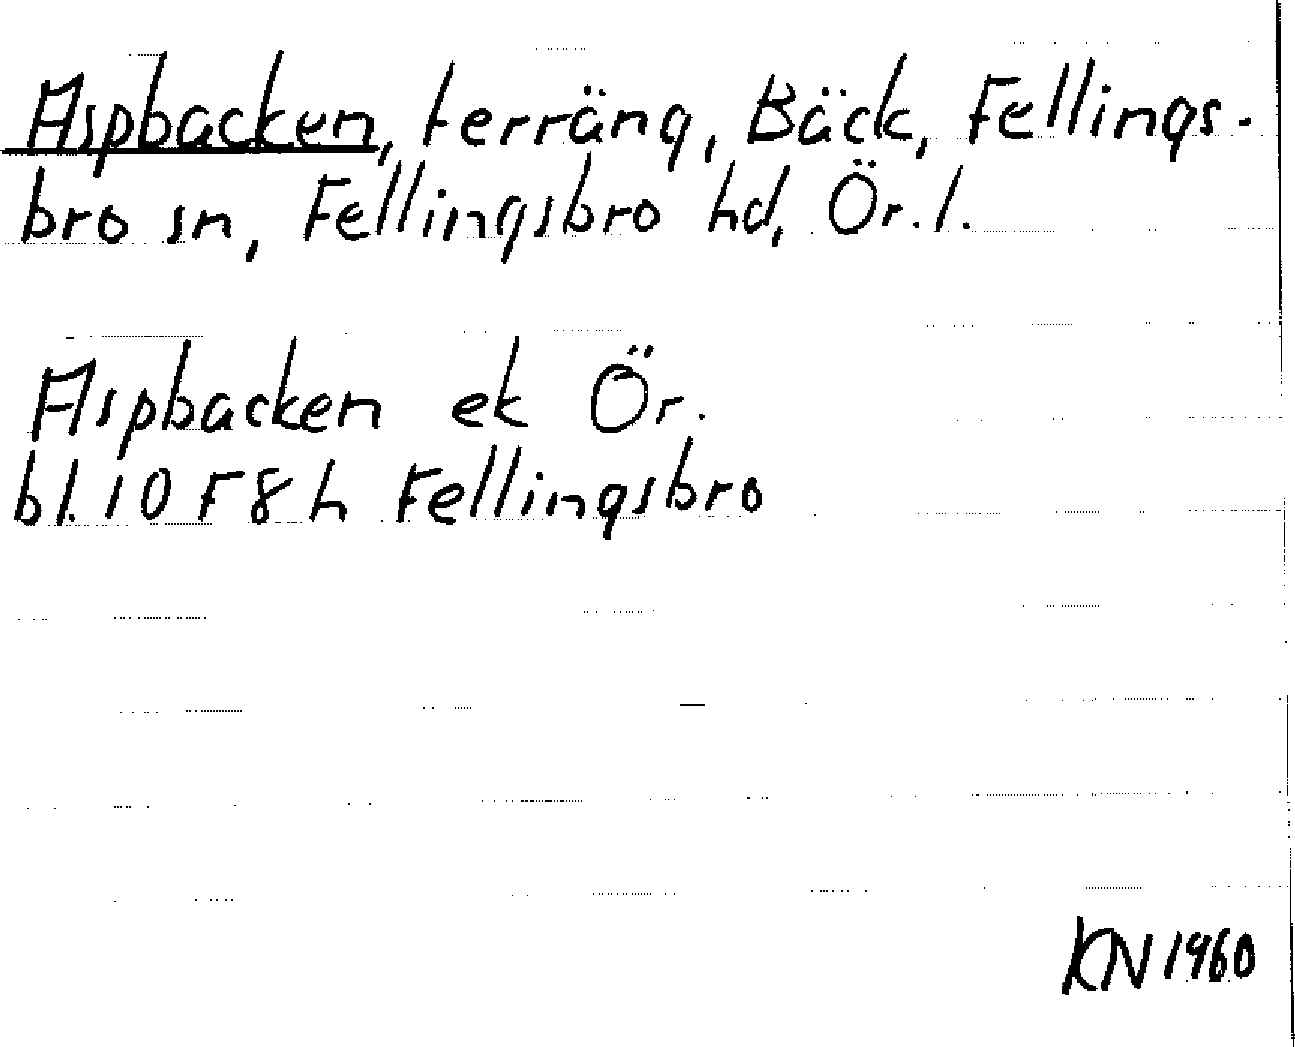 Aspbacken, terräng, Bäck, Fellings-
bro sn, Fellingsbro hd, Ör. l.
Aspbacken ek Ör.
bl. 10 F 8 h Fellingsbro
KN 1960